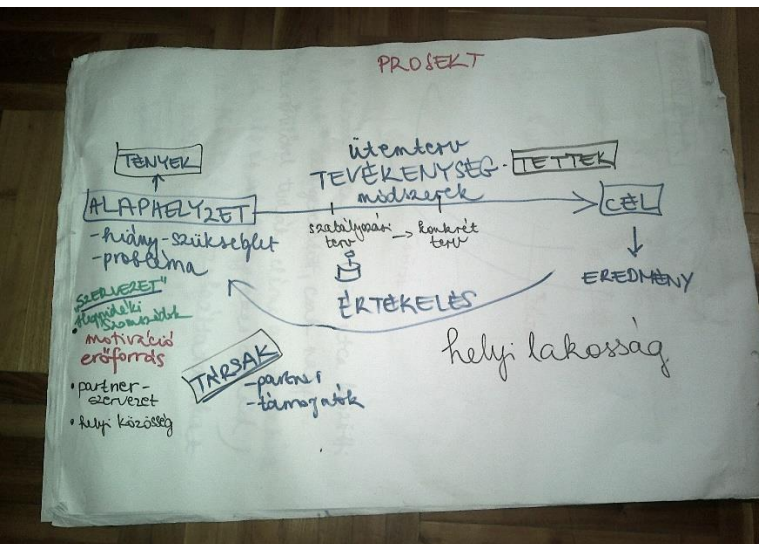 PROSEKT
TÉNYEK
ütemterv
TEVÉKENYSÉG - TETTEK
módszerek
ALAPHELYZET
CÉL
-hiány-szükséglet
-probléma
szabályozási terv → konkrét terv
EREDMÉNY
ÉRTÉKELÉS
"SZERVEZET"
szomszédok
motiváció
erőforrás
• partner-
szervezet
• helyi közösség
TÁRSAK
-partner
-támogatók
helyi lakosság